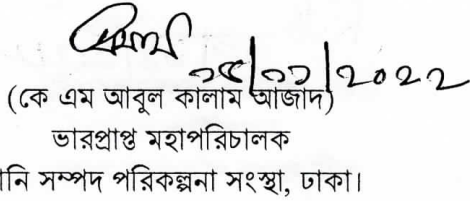 ০৫|০১|২০২২
(কে এম আবুল কালাম আজাদ)
ভারপ্রাপ্ত মহাপরিচালক
নি সম্পদ পরিকল্পনা সংস্থা, ঢাকা।